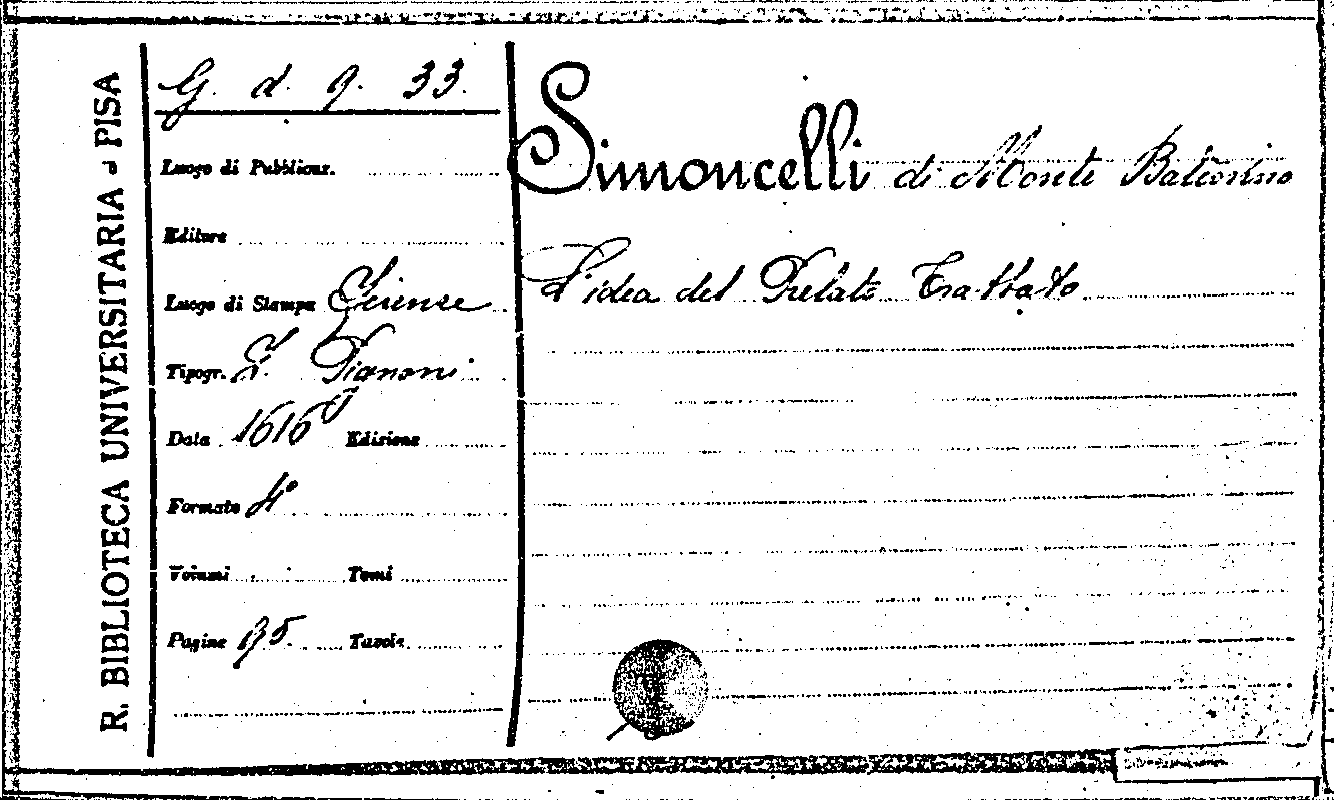 R. BIBLIOTECA UNIVERSITARIA - PISA
G. d. 9. 33.
Luogo di Pubblicaz.
Editore
Luogo di Stampa Firenze
Tipogr. Z. Pignoni
Data 1616 Edizione
Formato 4°
Volumi Tomi
Pagine 195 Tavole
Simoncelli di Monte Baldovino
L'idea del Prelato Trattato